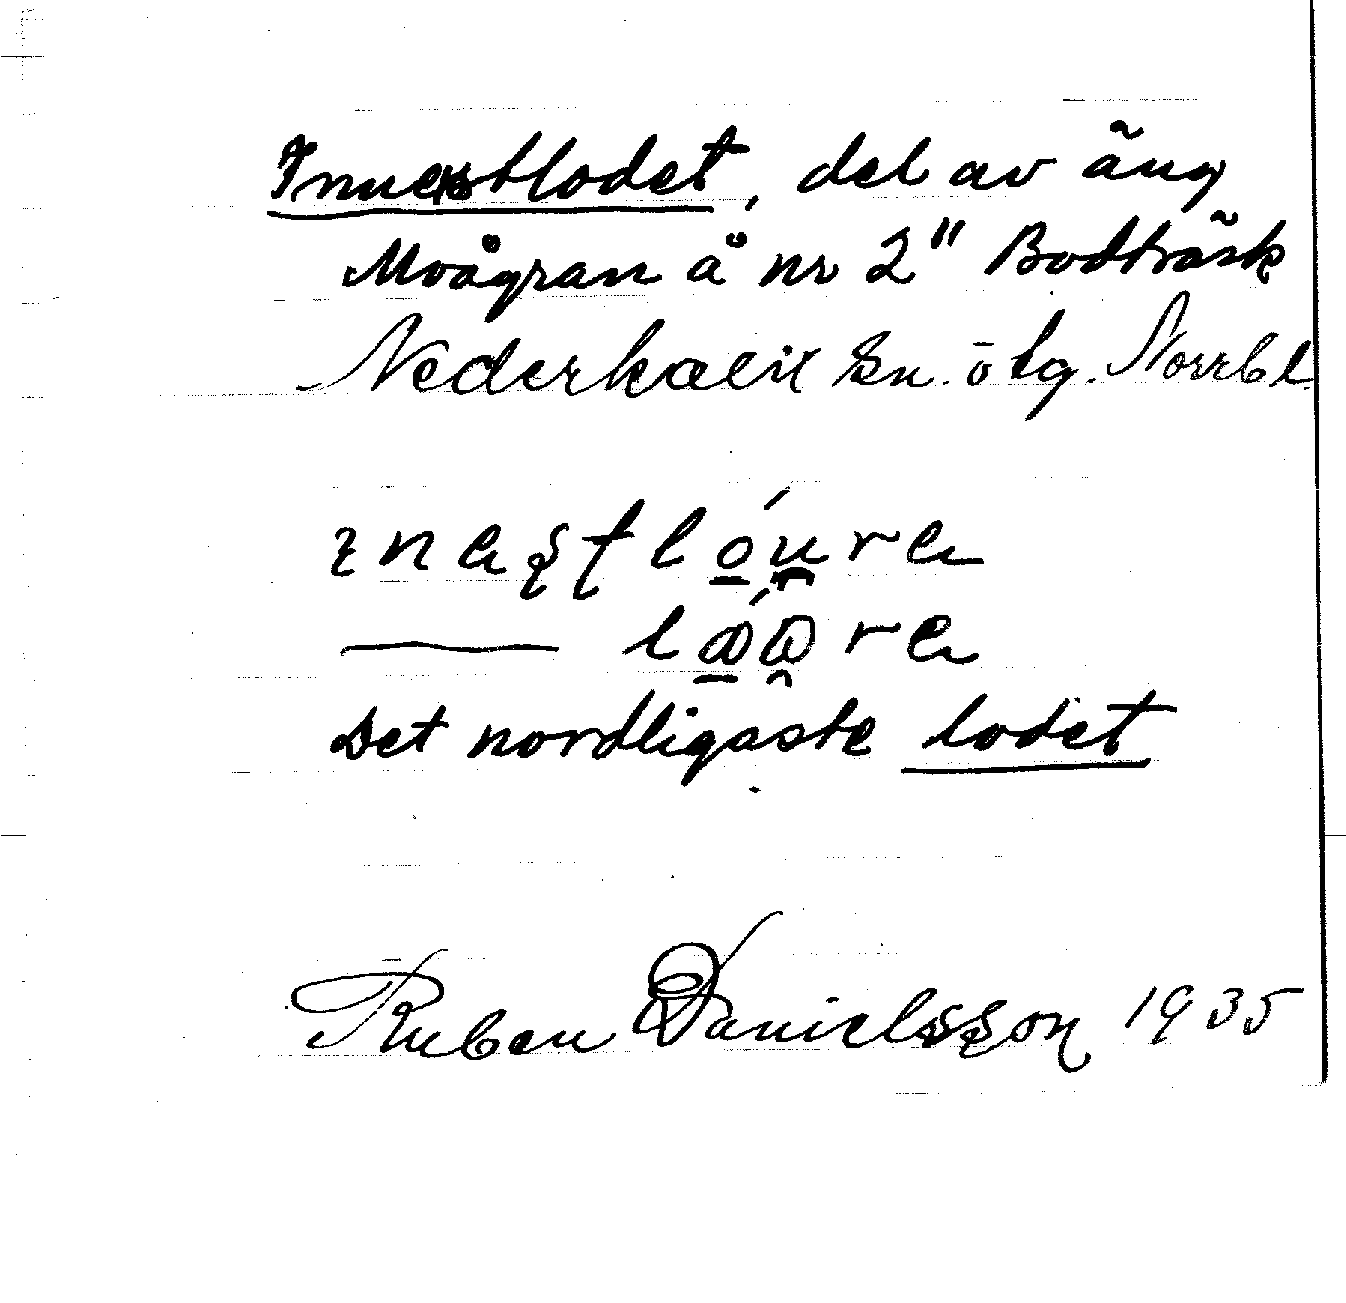 Innerstlodet, del av äng
Moågran å nr 2" Bodträsk
Nederkalix sn. ö tg. Norrb l.
det nordligaste lodet
Ruben Danielsson 1935